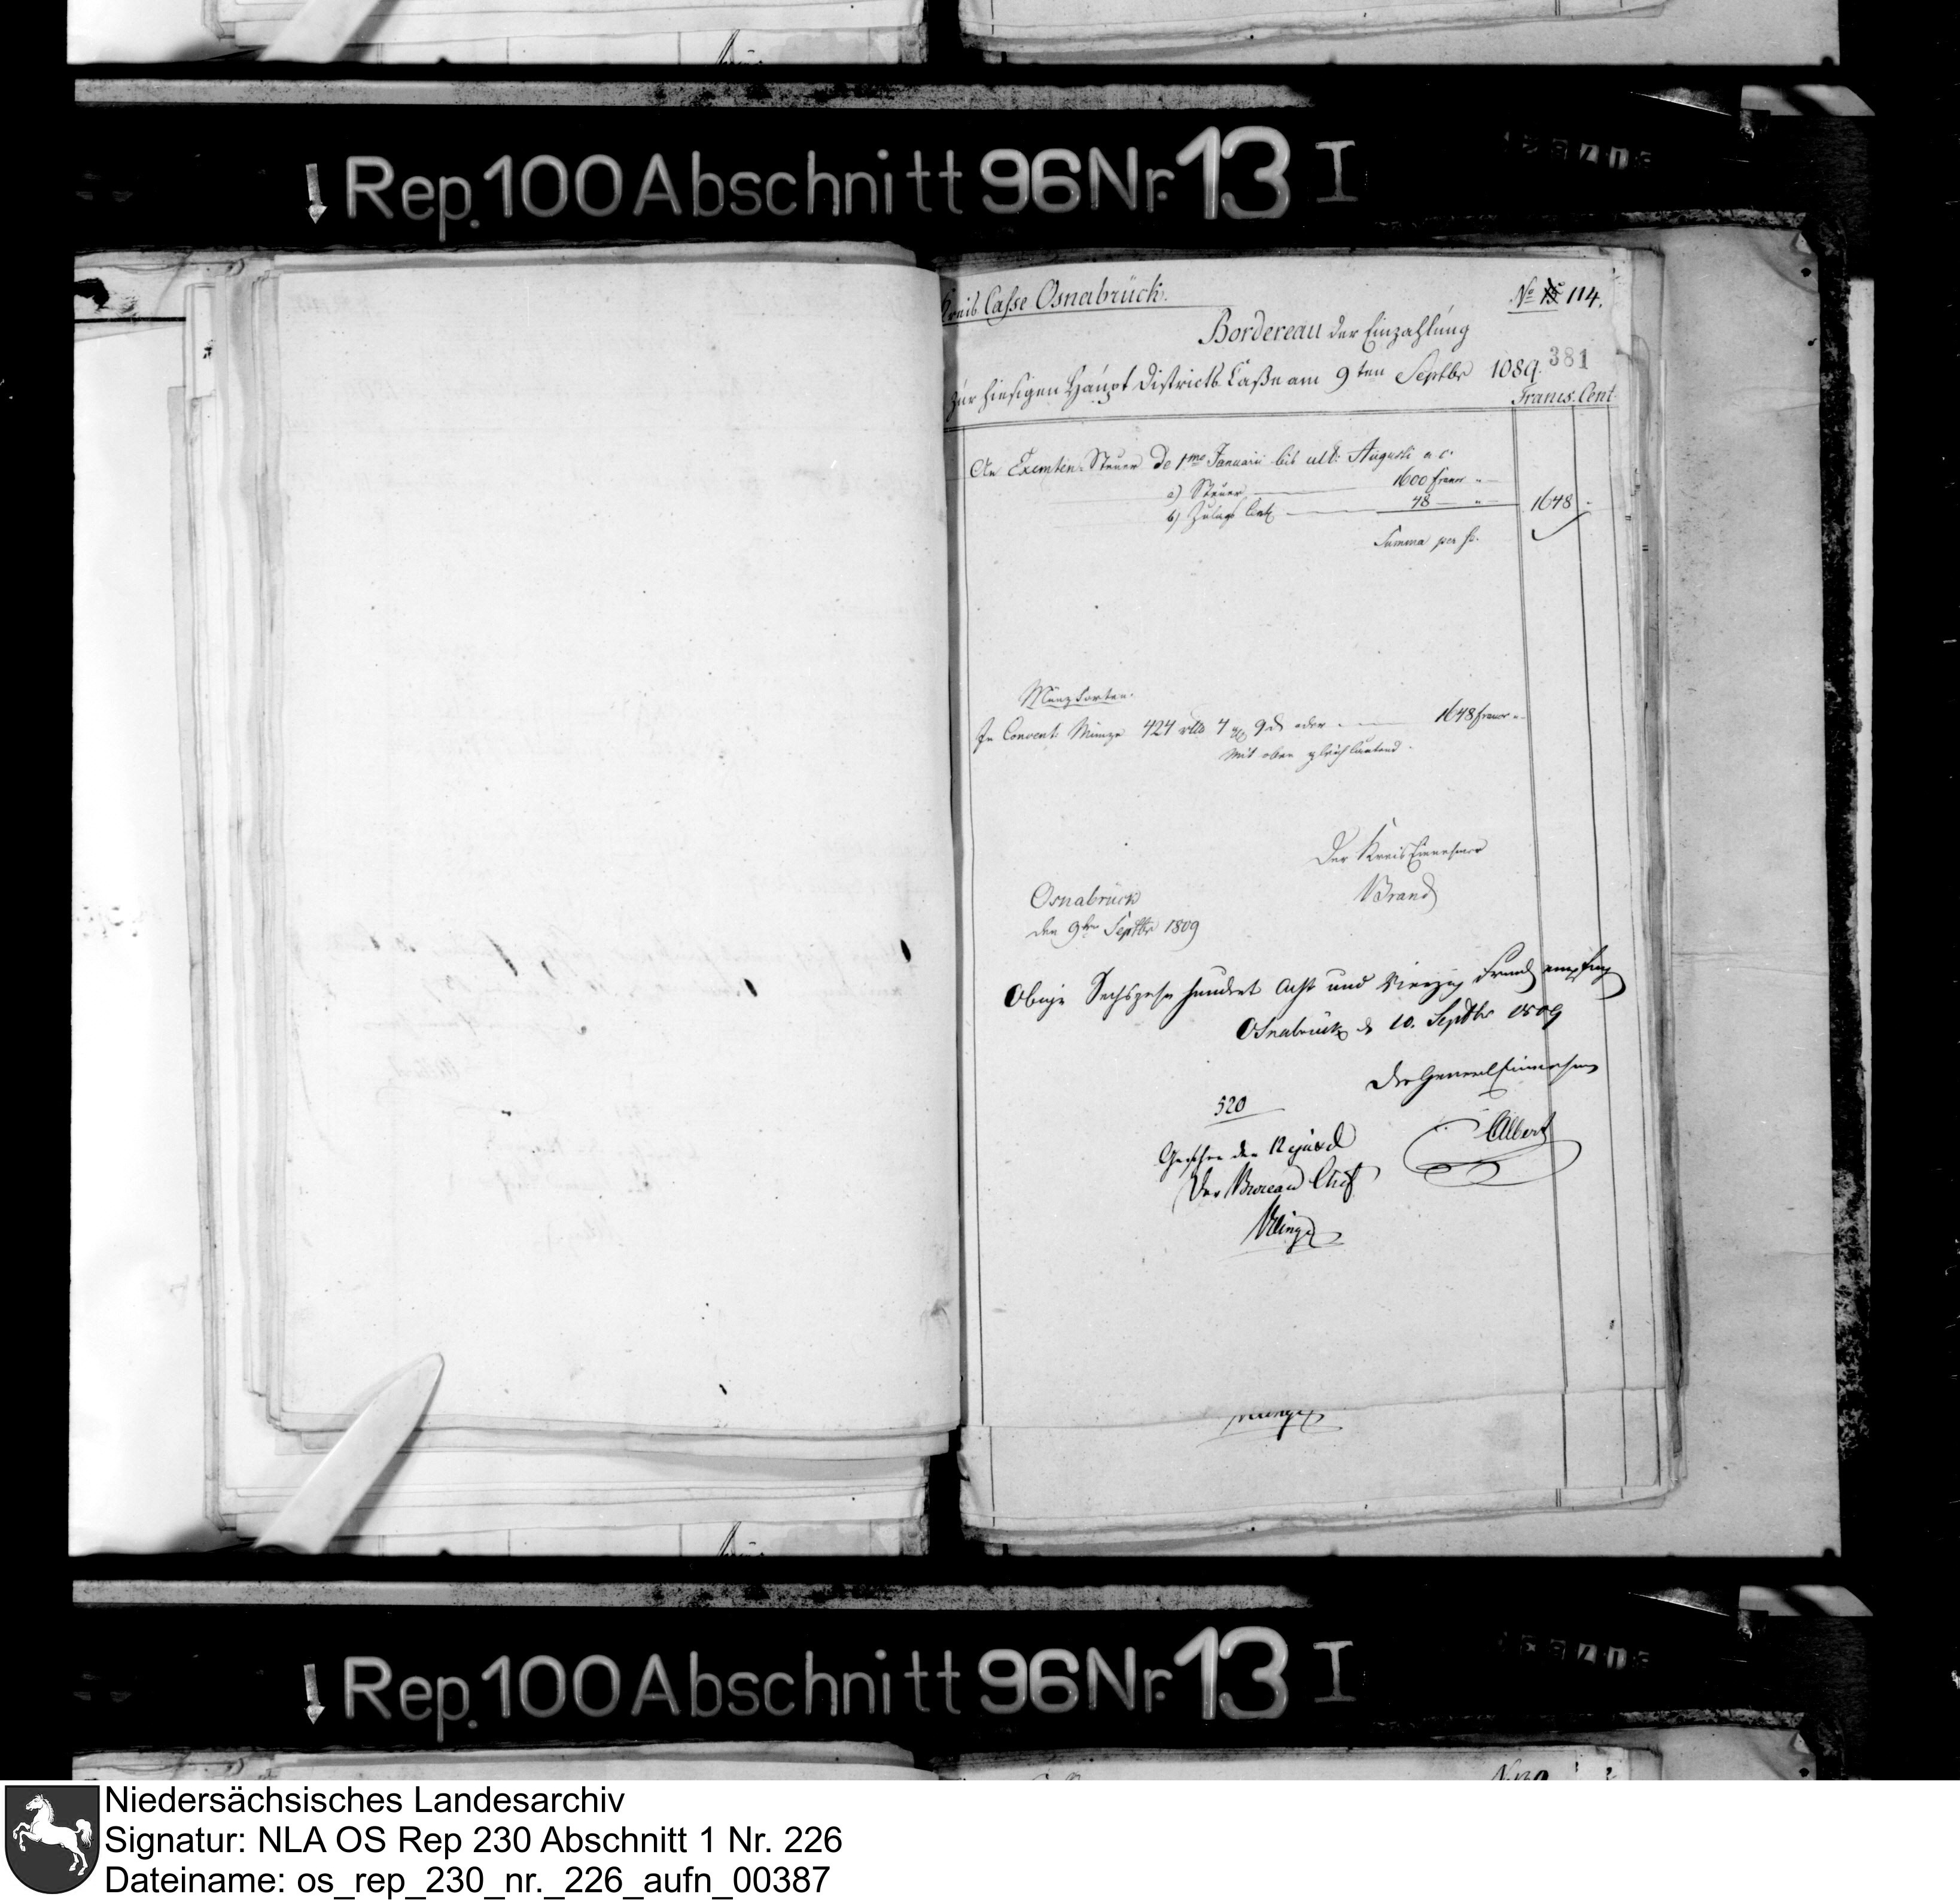 Rep. 100 Abschnitt 96 Nr. 13 I
Kreis Casse Osnabrück.
No 114.
Bordereau der Einzahlung
381
zur hiesigen Haupt Districts Casse am 9ten Septbr 1089.
Francs. Cent
An Exemten Steuer de 1mo Januarii bis ult: Augusti a. c.
a) Steuer 1600 francs "
b) Zulage Cent 48 " 1648 -
Summa per se.
Münzsorten.
In Convent: Münze 424 rtlr 4 9 d oder 1648 francs "
Mit oben gleichlautend.
Der Kreis Einnehmer
Brand
Osnabrück
den 9ten Septbr 1809
Obige Sechszehn hundert Acht und Vierzig Francs empfing
Osnabrück d 10. Septbr 1809
Der General Einnehmer
Albert
520
Gesehen den 12 ejusd
Der Bureau Chef
Rep. 100 Abschnitt 96 Nr. 13 I
Niedersächsisches Landesarchiv
Signatur: NLA OS Rep 230 Abschnitt 1 Nr. 226
Dateiname: os_rep_230_nr._226_aufn_00387